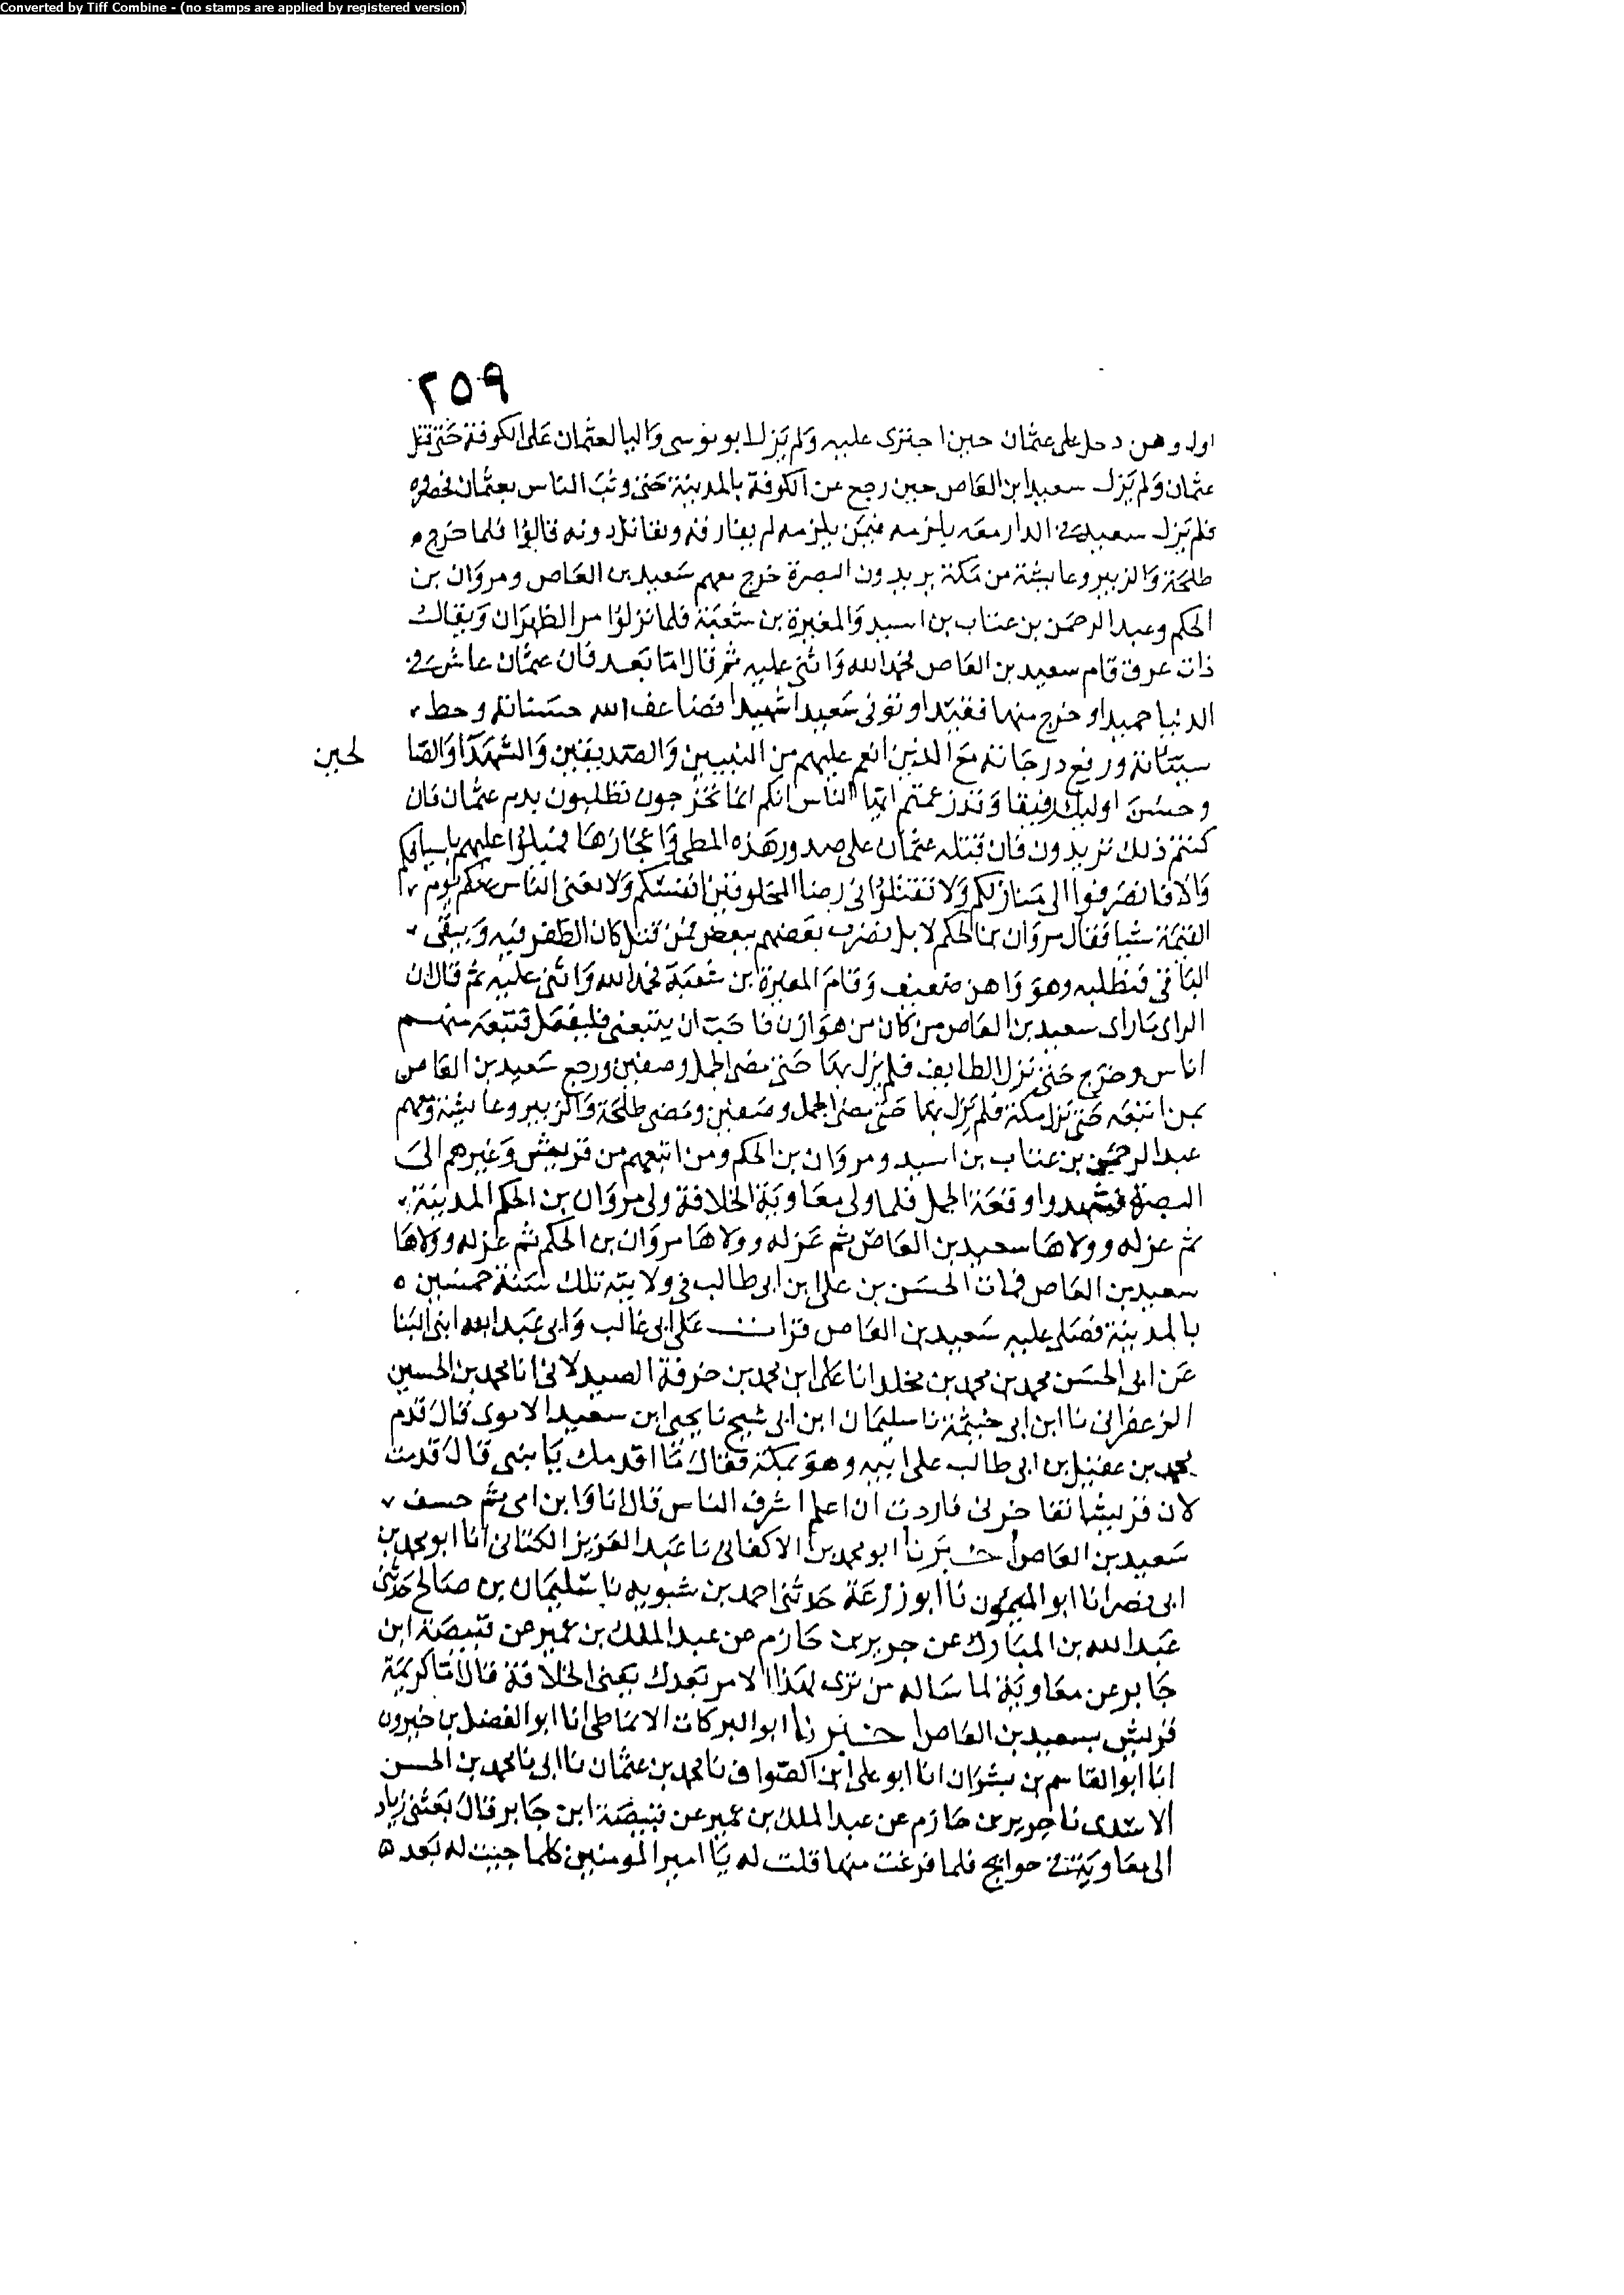 Converted by Tiff Combine - (no stamps are applied by registered version)
٢٥٩
اول وهن دخل على عثمان حين اجترى عليه ولم يزل ابو موسى واليا لعثمان على الكوفة حتى قتل
عثمان ولم يزل سعيد ابن العاص حين رجع عن الكوفة بالمدينة حتى وثب الناس بعثمان فحصروه
فلم يزل سعيد في الدار معه يلزمه فيمن يلزمه لم يفارقه ويقاتل دونه قالوا فلما خرج
طلحة والزبير وعايشة من مكة يريدون البصرة خرج معهم سعيد بن العاص ومروان بن
الحكم وعبد الرحمن بن عتاب بن اسيد والمغيرة بن شعبة فلما نزلوا مر الظهران ويقال
ذات عرق قام سعيد بن العاص فحمد الله واثنى عليه ثم قال اما بعد فان عثمان عاش في
الدنيا حميدا وخرج منها فقيدا وتوفى سعيدا شهيدا فضاعف الله حسناته وحط
سيئاته ورفع درجاته مع الذين انعم عليهم من النبيين والصديقين والشهدا والصا لحين
وحسن اوليك رفيقا وقد زعمتم ايها الناس انكم انما تخرجون تطلبون بدم عثمان فان
كنتم ذلك تريدون فان قتله عثمان على صدور هذه المطي واعجازها فميلوا عليهم باسيافكم
والا فانصرفوا الى منازلكم ولا تقتلوا في رضا المخلوقين انفسكم ولا يغنى الناس عنكم يوم
القيمة شيا فقال مروان بن الحكم لا بل نضرب بعضهم ببعض فمن قتل كان الظفر فيه ويبقى
الباقي فنطلبه وهو واهن ضعيف وقام المغيرة بن شعبة فحمد الله واثنى عليه ثم قال ان
الراى ما راى سعيد بن العاص من كان من هوازن فاحب ان يتبعنى فليفعل فتبعه منهم
اناس وخرج حتى نزل الطايف فلم يزل بها حتى مضى الجمل وصفين ورجع سعيد بن العاص
بمن اتبعه حتى نزل مكة فلم يزل بها حتى مضى الجمل وصفين ومضى طلحة والزبير وعايشة ومعهم
عبد الرحمن بن عتاب بن اسيد ومروان بن الحكم ومن اتبعهم من قريش وغيرهم الى
البصرة فشهدوا وقعة الجمل فلما ولى معاوية الخلافة ولى مروان بن الحكم المدينة
ثم عزله وولاها سعيد بن العاص ثم عزله وولاها مروان بن الحكم ثم عزله وولاها
سعيد بن العاص فمات الحسن بن على ابن ابى طالب في ولايته تلك سنة خمسين
بالمدينة فصلى عليه سعيد بن العاص قرات على ابى غالب وابى عبد الله ابنى البنا
عن ابى الحسن محمد بن محمد بن مخلد انا على ابن محمد بن خزفة الصيدلانى انا محمد بن الحسين
الزعفرانى نا ابن ابى خيثمة نا سليمان ابن ابى شيخ نا يحيى ابن سعيد الاموى قال قدم
محمد بن عقيل بن ابى طالب على ابيه وهو بمكة فقال ما اقدمك يا بنى قال قدمت
لان قريشا تفاخرنى فاردت ان اعلم اشرف الناس قال انا وابن امى ثم حسبك
سعيد بن العاص اخبرنا ابو محمد بن الاكفانى نا عبد العزيز الكتانى انا ابو محمد بن
ابى نصر انا ابو الميمون نا ابو زرعة حدثنى احمد بن شبويه نا سليمان بن صالح حدثنى
عبد الله بن المبارك عن جرير بن حازم عن عبد الملك بن عمير عن قبيصة ابن
جابر عن معاوية لما ساله من ترى لهذا الامر بعدك يعنى الخلافة قال اما كريمة
قريش بسعيد بن العاص اخبرنا ابو البركات الانماطى انا ابو الفضل بن خيرون
انا ابو القاسم بن بشران انا ابو على ابن الصواف نا محمد بن عثمان نا ابى نا محمد بن الحسن
الاسدى نا جرير بن حازم عن عبد الملك بن عمير عن قبيصة ابن جابر قال بعثنى زياد
الى معاوية في حوايج فلما فرغت منها قلت له يا امير المومنين كلما جيت له بعد